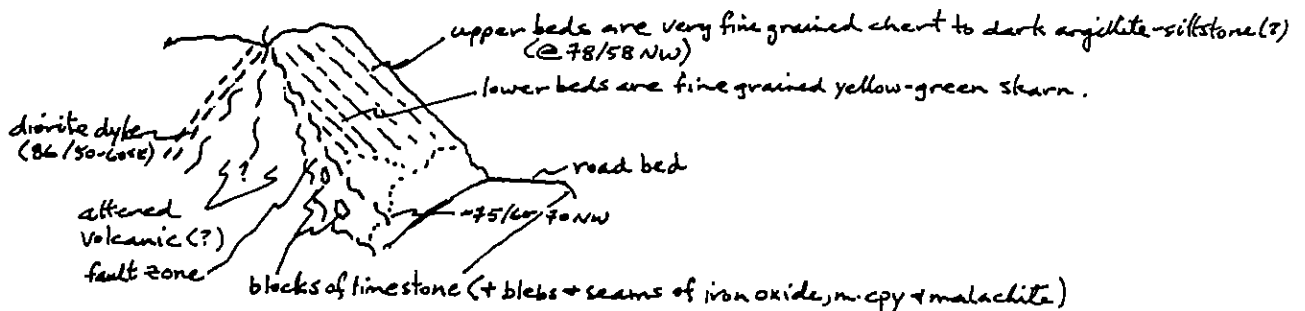 upper beds are very fine grained chert to dark argillite-siltstone(?)
(@ 78/58 NW)
lower beds are fine grained yellow-green skarn.
diorite dyke
(86/50-60SE)
?
road bed
altered
volcanic(?)
~75/60-70NW
fault zone
blocks of limestone (+ blebs + seams of iron oxide, m. cpy + malachite)